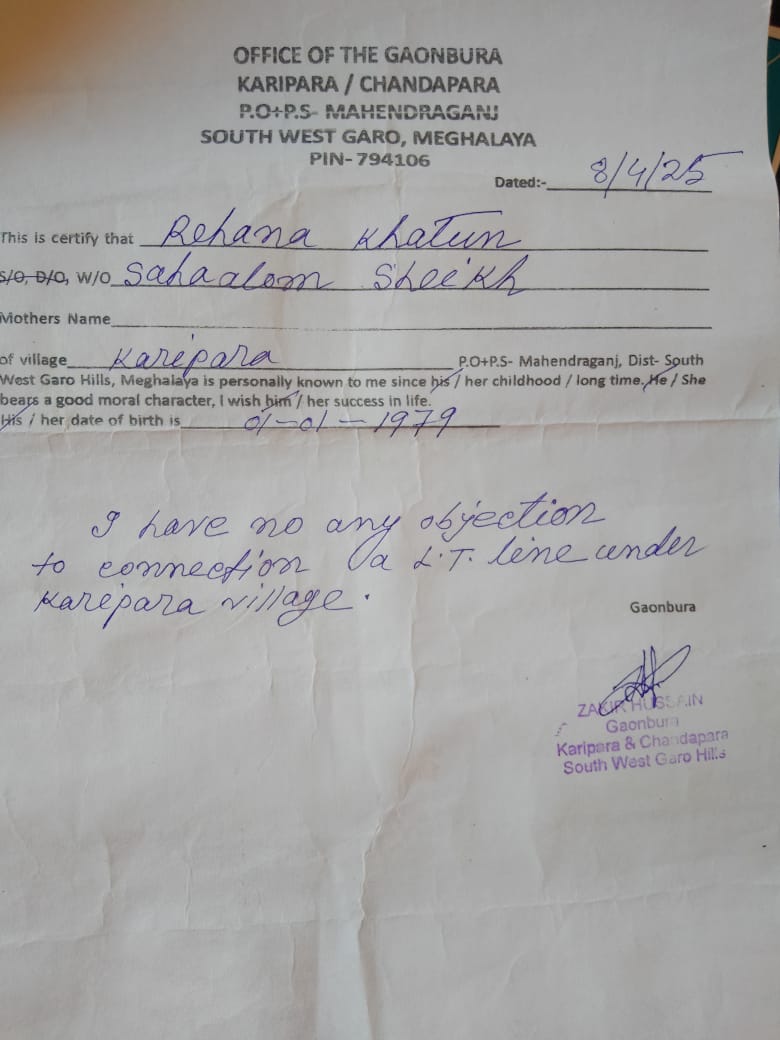 OFFICE OF THE GAONBURA
KARIPARA / CHANDAPARA
P.O+P.S- MAHENDRAGANJ
SOUTH WEST GARO, MEGHALAYA
PIN- 794106
Dated:- 8/4/25
This is certify that Rehana Khatun
S/O, D/O, W/O Sahaalom Sheikh
Mothers Name
of village Karipara P.O+P.S- Mahendraganj, Dist- South
West Garo Hills, Meghalaya is personally known to me since his / her childhood / long time. He / She
bears a good moral character, I wish him / her success in life.
His / her date of birth is 01-01-1979
I have no any objection
to connection a L.T. line under
Karipara village.
Gaonbura
ZAKIR HUSSAIN
Gaonbura
Karipara & Chandapara
South West Garo Hills